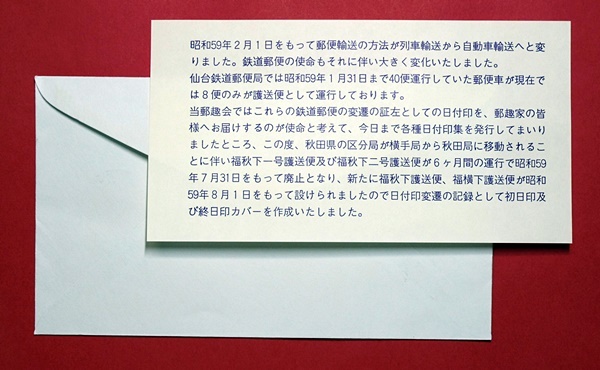 昭和59年2月1日をもって郵便輸送の方法が列車輸送から自動車輸送へと変
りました。鉄道郵便の使命もそれに伴い大きく変化いたしました。
仙台鉄道郵便局では昭和59年1月31日まで40便運行していた郵便車が現在で
は8便のみが護送便として運行しております。
当郵趣会ではこれらの鉄道郵便の変遷の証左としての日付印を、郵趣家の皆
様へお届けするのが使命と考えて、今日まで各種日付印集を発行してまいり
ましたところ、この度、秋田県の区分局が横手局から秋田局に移動されるこ
とに伴い福秋下一号護送便及び福秋下二号護送便が6ヶ月間の運行で昭和59
年7月31日をもって廃止となり、新たに福秋下護送便、福横下護送便が昭和
59年8月1日をもって設けられましたので日付印変遷の記録として初日印及
び終日印カバーを作成いたしました。